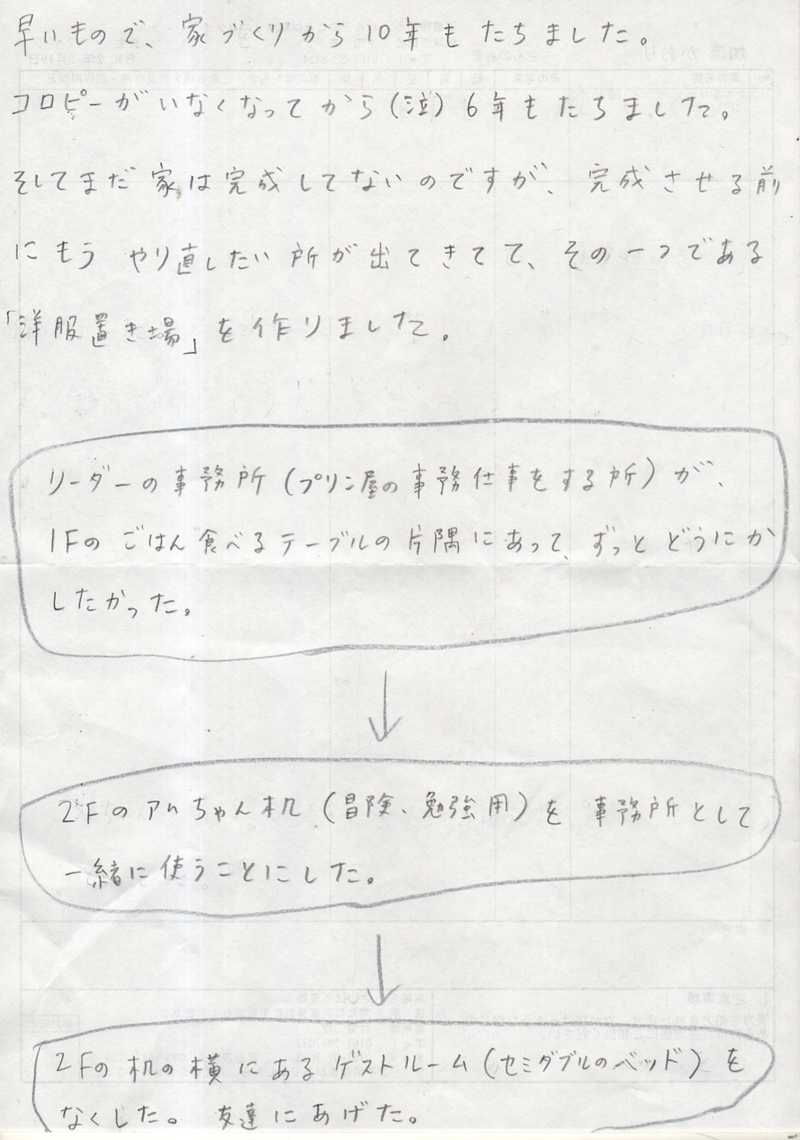 早いもので、家づくりから10年もたちました。
コロピーがいなくなってから(泣)6年もたちました。
そしてまだ家は完成してないのですが、完成させる前
にもう やり直したい所が出てきてて、その一つである
「洋服置き場」を作りました。
リーダーの事務所(プリン屋の事務仕事をする所)が、
1Fのごはん食べるテーブルの片隅にあって、ずっとどうにか
したかった。
2Fのアムちゃん机(冒険、勉強用)を 事務所として
一緒に使うことにした。
2Fの机の横にあるゲストルーム(セミダブルのベッド)を
なくした。 友達にあげた。